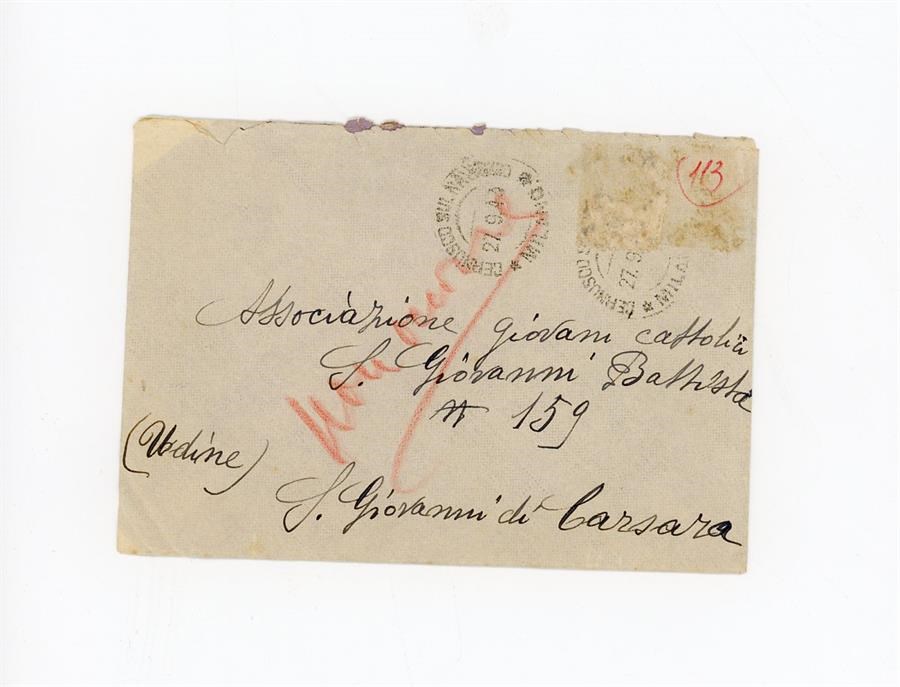 CERNUSCO SUL NAVIGLIO
27.9.4
* MILANO *
113
CERNUSCO
27.9
* MILA
Associazione giovani cattolici
S. Giovanni Battista
N 159
(Udine)
S. Giovanni di Carsara